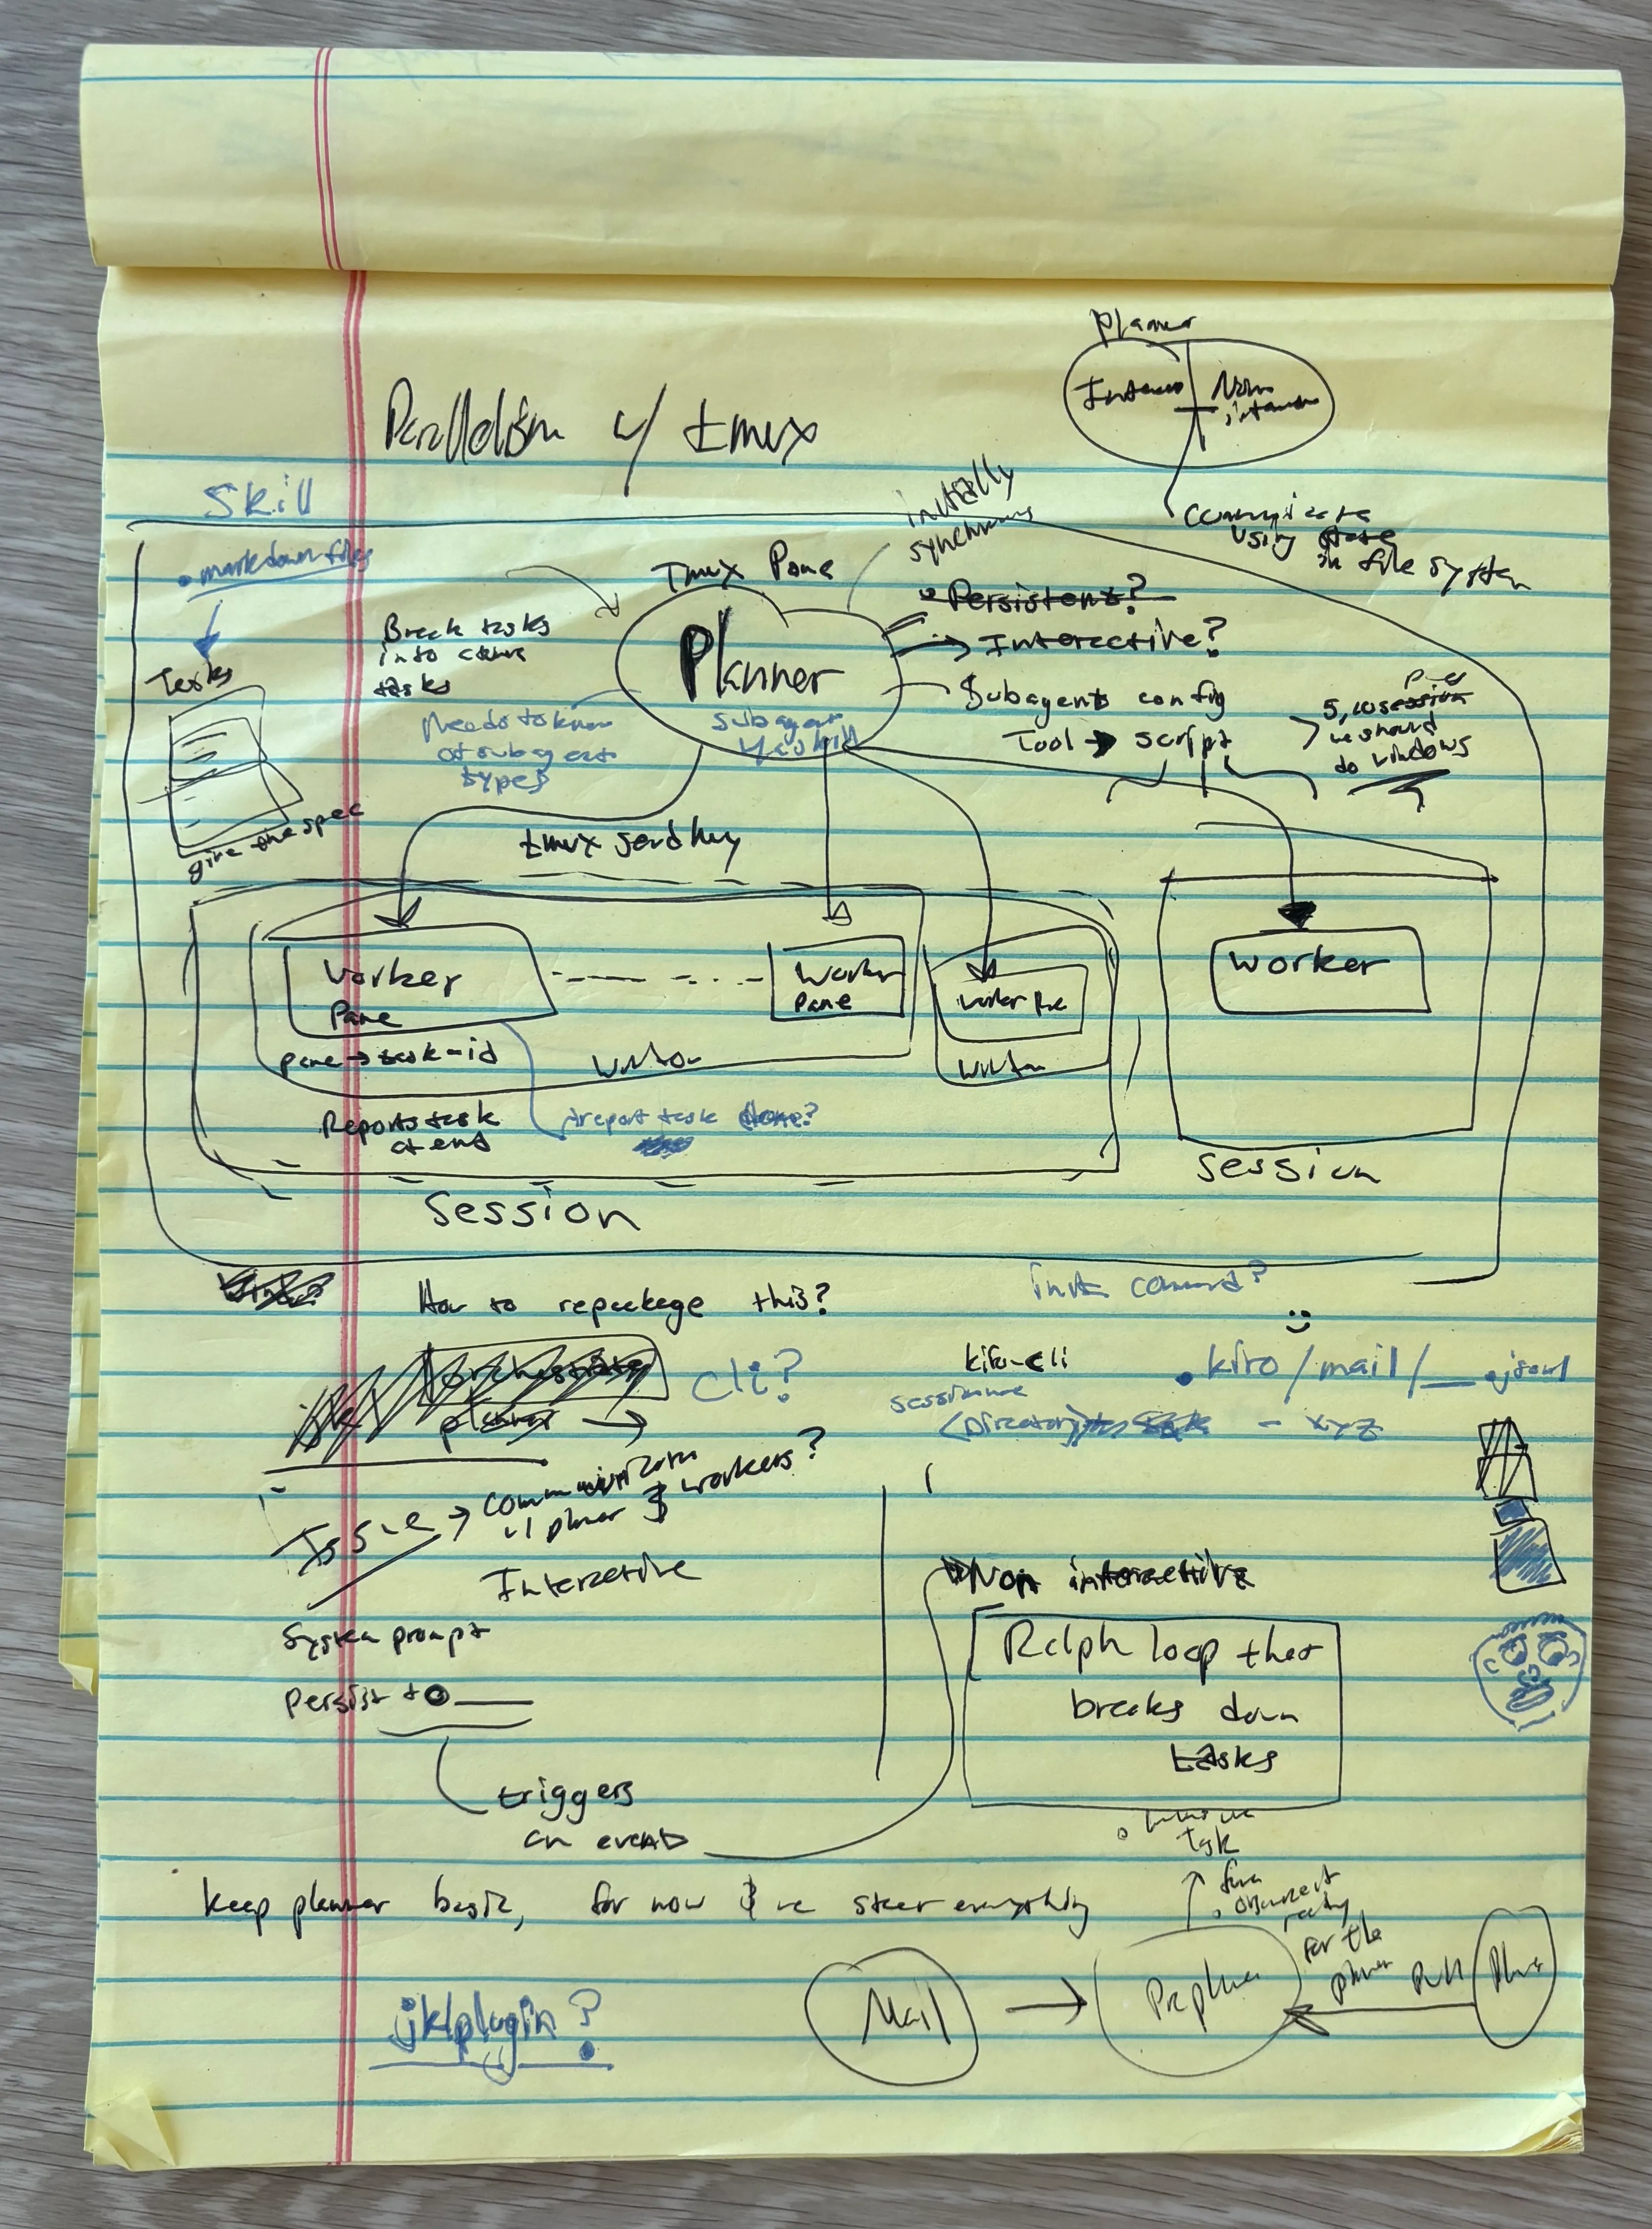 Planner
Non
Parallelism w/ tmux
communicate
using state
in file system
Skill
• markdown files
initially
synchronous
Tmux Pane
• Persistent?
→ Interactive?
Planner
subagent
Break tasks
into
tasks
Needs to know
of subagent
types
Subagents config
Tool → script
session
we should
do windows
Tasks
give the spec
tmux send key
Worker
Pane
Worker
Pane
Worker Pane
Worker
pane → task-id
Window
Window
Reports task
at end
report task done?
Session
Session
How to repackage this?
init command?
orchestrator
planner →
cli?
kiro-cli
session name
.kiro/mail/__.jsonl
(Directory) - xyz
Issue → communication
w/ planner & workers?
Interactive
Non interactive
System prompt
Persist to ___
triggers
an event
Ralph loop that
breaks down
tasks
task
keep planner basic, for now & we steer everything
for the
planner
Mail
Pull
jklplugin?